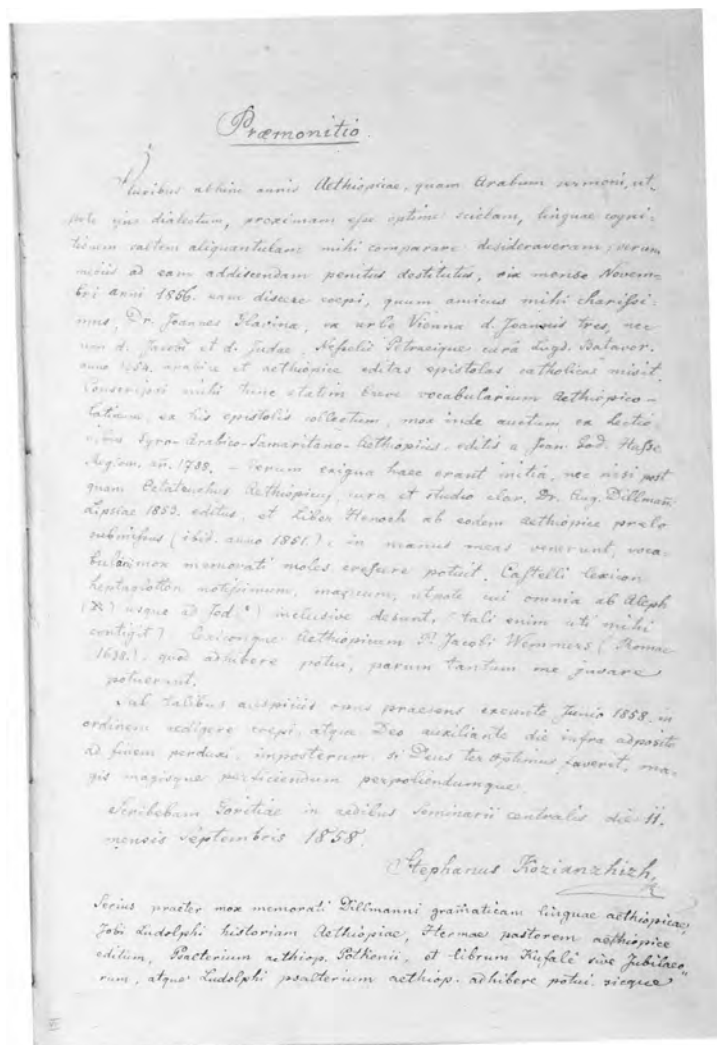 Præmonitio.
Pluribus abhinc annis Aethiopicae, quam Arabum sermoni, ut-
pote ejus dialectum, proximam esse optime sciebam, linguae cogni-
tionem saltem aliquantulam mihi comparare desideraveram; verum
mediis ad eam addiscendam penitus destitutus, vix mense Novem-
bri anni 1856. eam discere coepi, quum amicus mihi charissi-
mus, Dr. Joannes , ex urbe Vienna d. Joannis tres, nec
non d. Jacobi et d. Judae, Nisselii Petraeique cura Lugd. Batavor.
anno 1654. arabice et aethiopice editas epistolas catholicas misit.
Conscripsi mihi tunc statim breve vocabularium Aethiopico-
latinum, ex his epistolis collectum, mox inde auctum ex lectio-
nibus Syro-Arabico-Samaritano-Aethiopicis, editis a Joan. God. Hasse
Regiom. an. 1788. - Verum exigua haec erant initia, nec nisi post
quam Octateuchus Aethiopicus, cura et studio clar. Dr. Aug. Dillmann
Lipsiae 1853. editus, et Liber Henoch ab eodem aethiopice prelo
submissus (ibid. anno 1851.), in manus meas venerunt, voca-
bularii mox memorati moles crescere potuit. Castelli lexicon
heptaglotton notissimum, magicum, utpote cui omnia ab Aleph
(א) usque ad Jod (י) inclusive desunt, (tali enim uti mihi
contigit) lexiconque Aethiopicum P. Jacobi Wemmers (Romae
1638.), quod adhibere potui, parum tantum me juvare
potuerunt.
Sub talibus auspiciis opus praesens exeunte Junio 1858. in
ordinem redigere coepi, atque Deo auxiliante die infra adposito
ad finem perduxi, imposterum, si Deus ter optimus faveret, ma-
gis magisque perficiendum perpoliendumque.
Scribebam Goritiae in aedibus Seminarii centralis die 11.
mensis Septembris 1858.
Stephanus Kozianzhizh,
Serius praeter mox memorati Dillmanni gram̄aticam linguae aethiopicae,
Jobi Ludolphi historiam Aethiopiae, Hermae pastorem aethiopice
editum, Psalterium aethiop. Potkenii, et librum Kufalē sive Jubilaeo-
rum, atque Ludolphi psalterium aethiop. adhibere potui. sicque